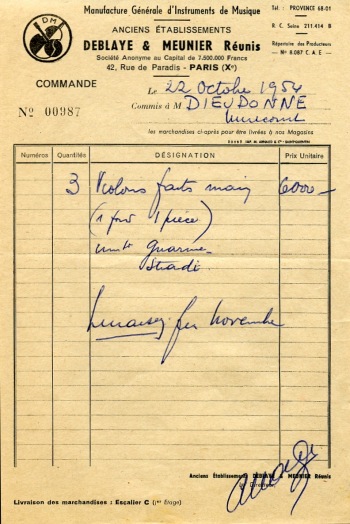 Manufacture Générale d'Instruments de Musique
Tél. : PROVENCE 68-01
R. C. Seine 211.414 B
Répertoire des Producteurs
N° 8.087 C. A. E
DM
ANCIENS ÉTABLISSEMENTS
DEBLAYE & MEUNIER Réunis
Société Anonyme au Capital de 7.500.000 Francs
42, Rue de Paradis - PARIS (Xe)
COMMANDE
Nº 00987
Le 22 Octobre 1954
Commis à M DIEUDONNE
Mirecourt
les marchandises ci-après pour être livrées à nos Magasins
Numéros Quantités DÉSIGNATION Prix Unitaire
3 Violons faits main 6000 —
(1 fond 1 pièce)
Guarne
Stradi.
Livraison fin Novembre
Anciens Établissements DEBLAYE & MEUNIER Réunis
Le Directeur,
Livraison des marchandises : Escalier C (1er Étage)